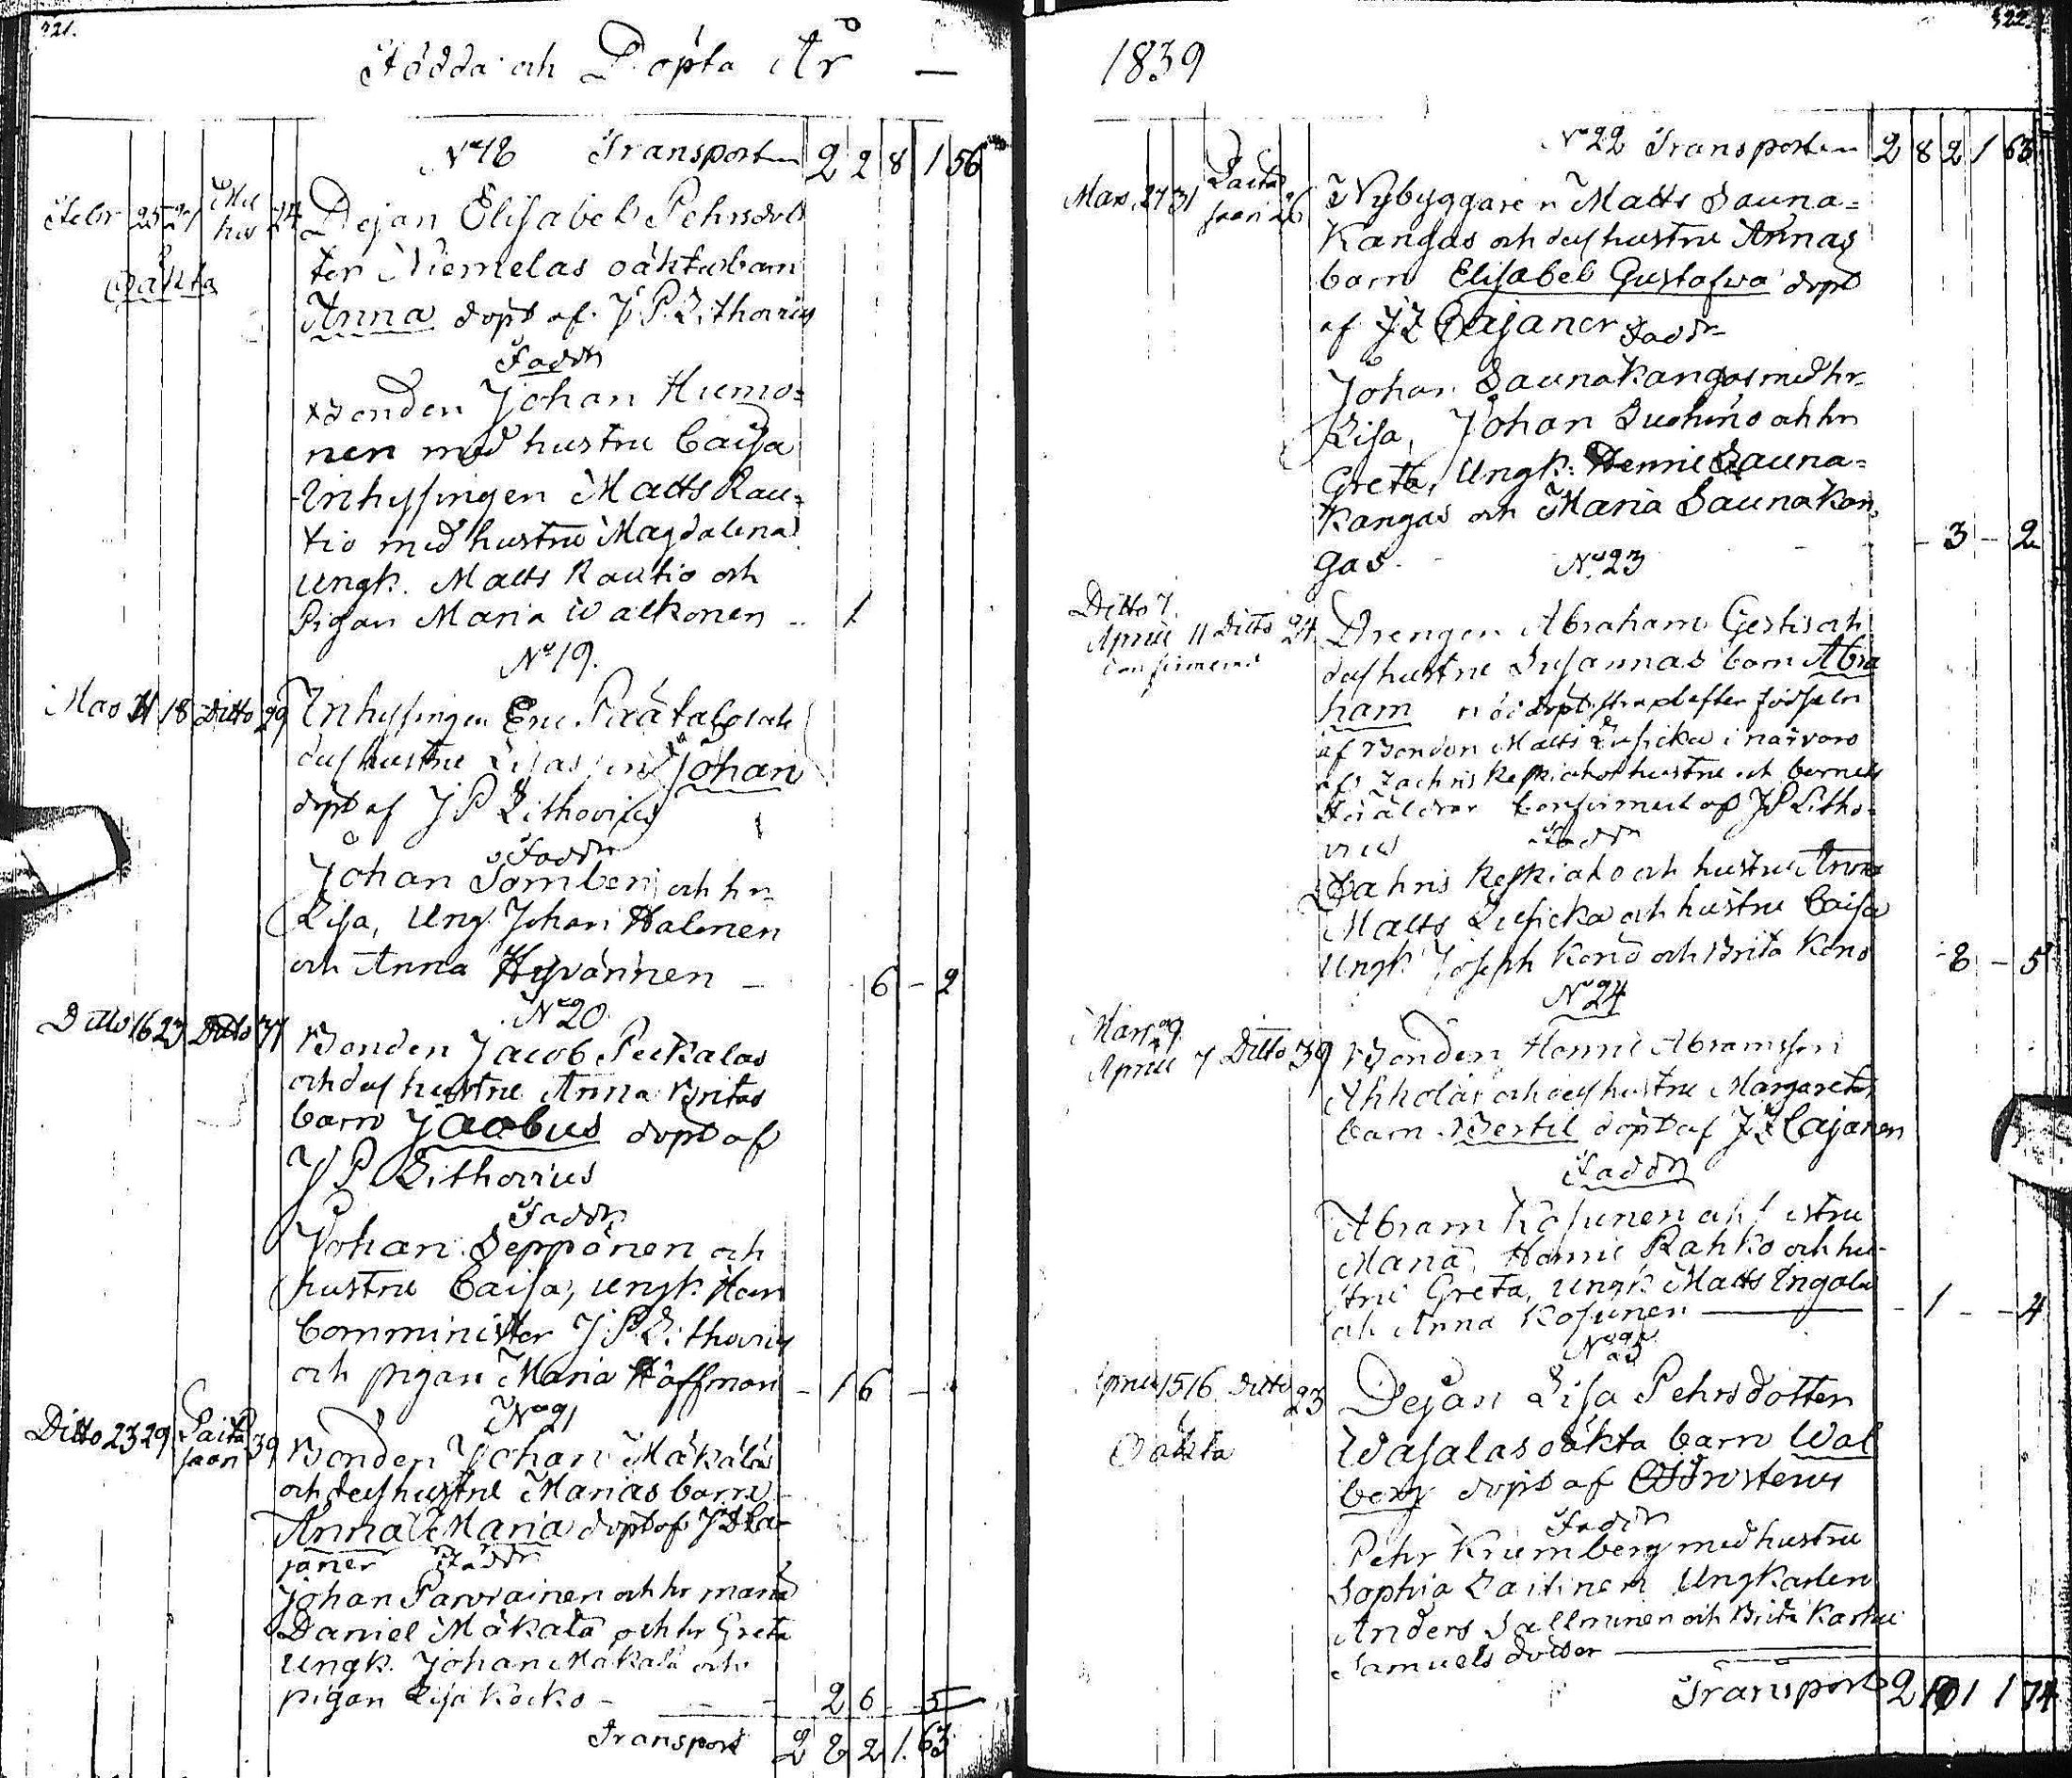 321.
Födda och Döpta År —
No 18 Transporten 2 2 8 1 56
Febr 25 27 24 Dejan Elisabet Pehrsdot
ter Niemelas oäkta barn
Oäkta
Anna döpt af J P Lithovius
Faddr
Bonden Johan Huemo=
nen med hustru Caisa
Inhysingen Matts Rau=
tio med hustru Magdalena
Ungk. Matts Rautio och
Pigan Maria Walkonen - 1
No 19.
Mars 11 18 Ditto 29 Inhysingen Eric Piätalas och
dess hustru Lisas son Johan
döpt af J P Lithovius
Faddr
Johan Somber och hr
Lisa, Ung. Johan Halonen
och Anna Hyvönnen - 6 - 2
No 20
Ditto 16 23 Ditto 37 Bonden Jacob Peckalas
och dess hustru Anna Britas
barn Jacobus döpt af
J P Lithovius
Faddr
Johan Seppänen och
hustru Caisa, Ungk. Herr
Comminister J P Lithovius
och pigan Maria Hoffman - 1 6 -
No 21
Ditto 23 29 Paita 39 Bonden Johan Mäkäläs
saari
och dess hustru Marias barn
Anna Maria döpt af J Z Ca-
janer Faddr
Johan Parviainen och hr Maria
Daniel Mäkälä och hr Greta
Ungk. Johan Mäkälä och
pigan Lisa Kocko - 2 6 - 5
Transport 2 8 2 1. 63
322
1839
No 22 Transporten 2 8 2 1 63
Mars 27 31 Paita
saari 26 Nybyggaren Matts Sauna=
kangas och dess hustru Annas
barn Elisabet Gustafva döpt
af J Z Cajaner Faddr
Johan Saunakangas med hr
Lisa, Johan Suohino och hr
Greta, Ungk: Henric Sauna=
kangas och Maria Saunakan=
gas. - 3 - 2
No 23
Ditto 7
April 11 Ditto 24 Drengen Abraham Gertis och
confirmerad
dess hustru Susannas barn Abra
ham nöddöpt strax efter födseln
af Bonden Matts Lusicka i närvaro
af Zachris Keskiaho hustru och barnets
Föräldrar confirmerat af J P Litho-
vius Faddr
Zachris Keskiaho och hustru Anna
Matts Lusicka och hustru Caisa
Ungk. Joseph Kono och Brita Kono - 8 - 5
No 24
Mars 29
April 7 Ditto 39 Bonden Henric Abramsson
Ahholas och dess hustru Margaretas
barn Bertil döpt af J Z Cajanen
Faddr
Abram Kosunen och hustru
Maria, Henric Rahko och hu-
stru Greta, Ungk. Matts Ingalu
och Anna Kosunen - 1 - - 4
No 25
April 15 16 Ditto 23 Dejan Lisa Pehrsdotter
Oäkta
Wasalas oäkta barn Wal
berg döpt af
Faddr
Pehr Krumberg med hustru
Sophia Laitinen Ungkarlen
Anders Sallminen och Brita Karhu
Samuelsdotter
Transport 2 10 1 1 74